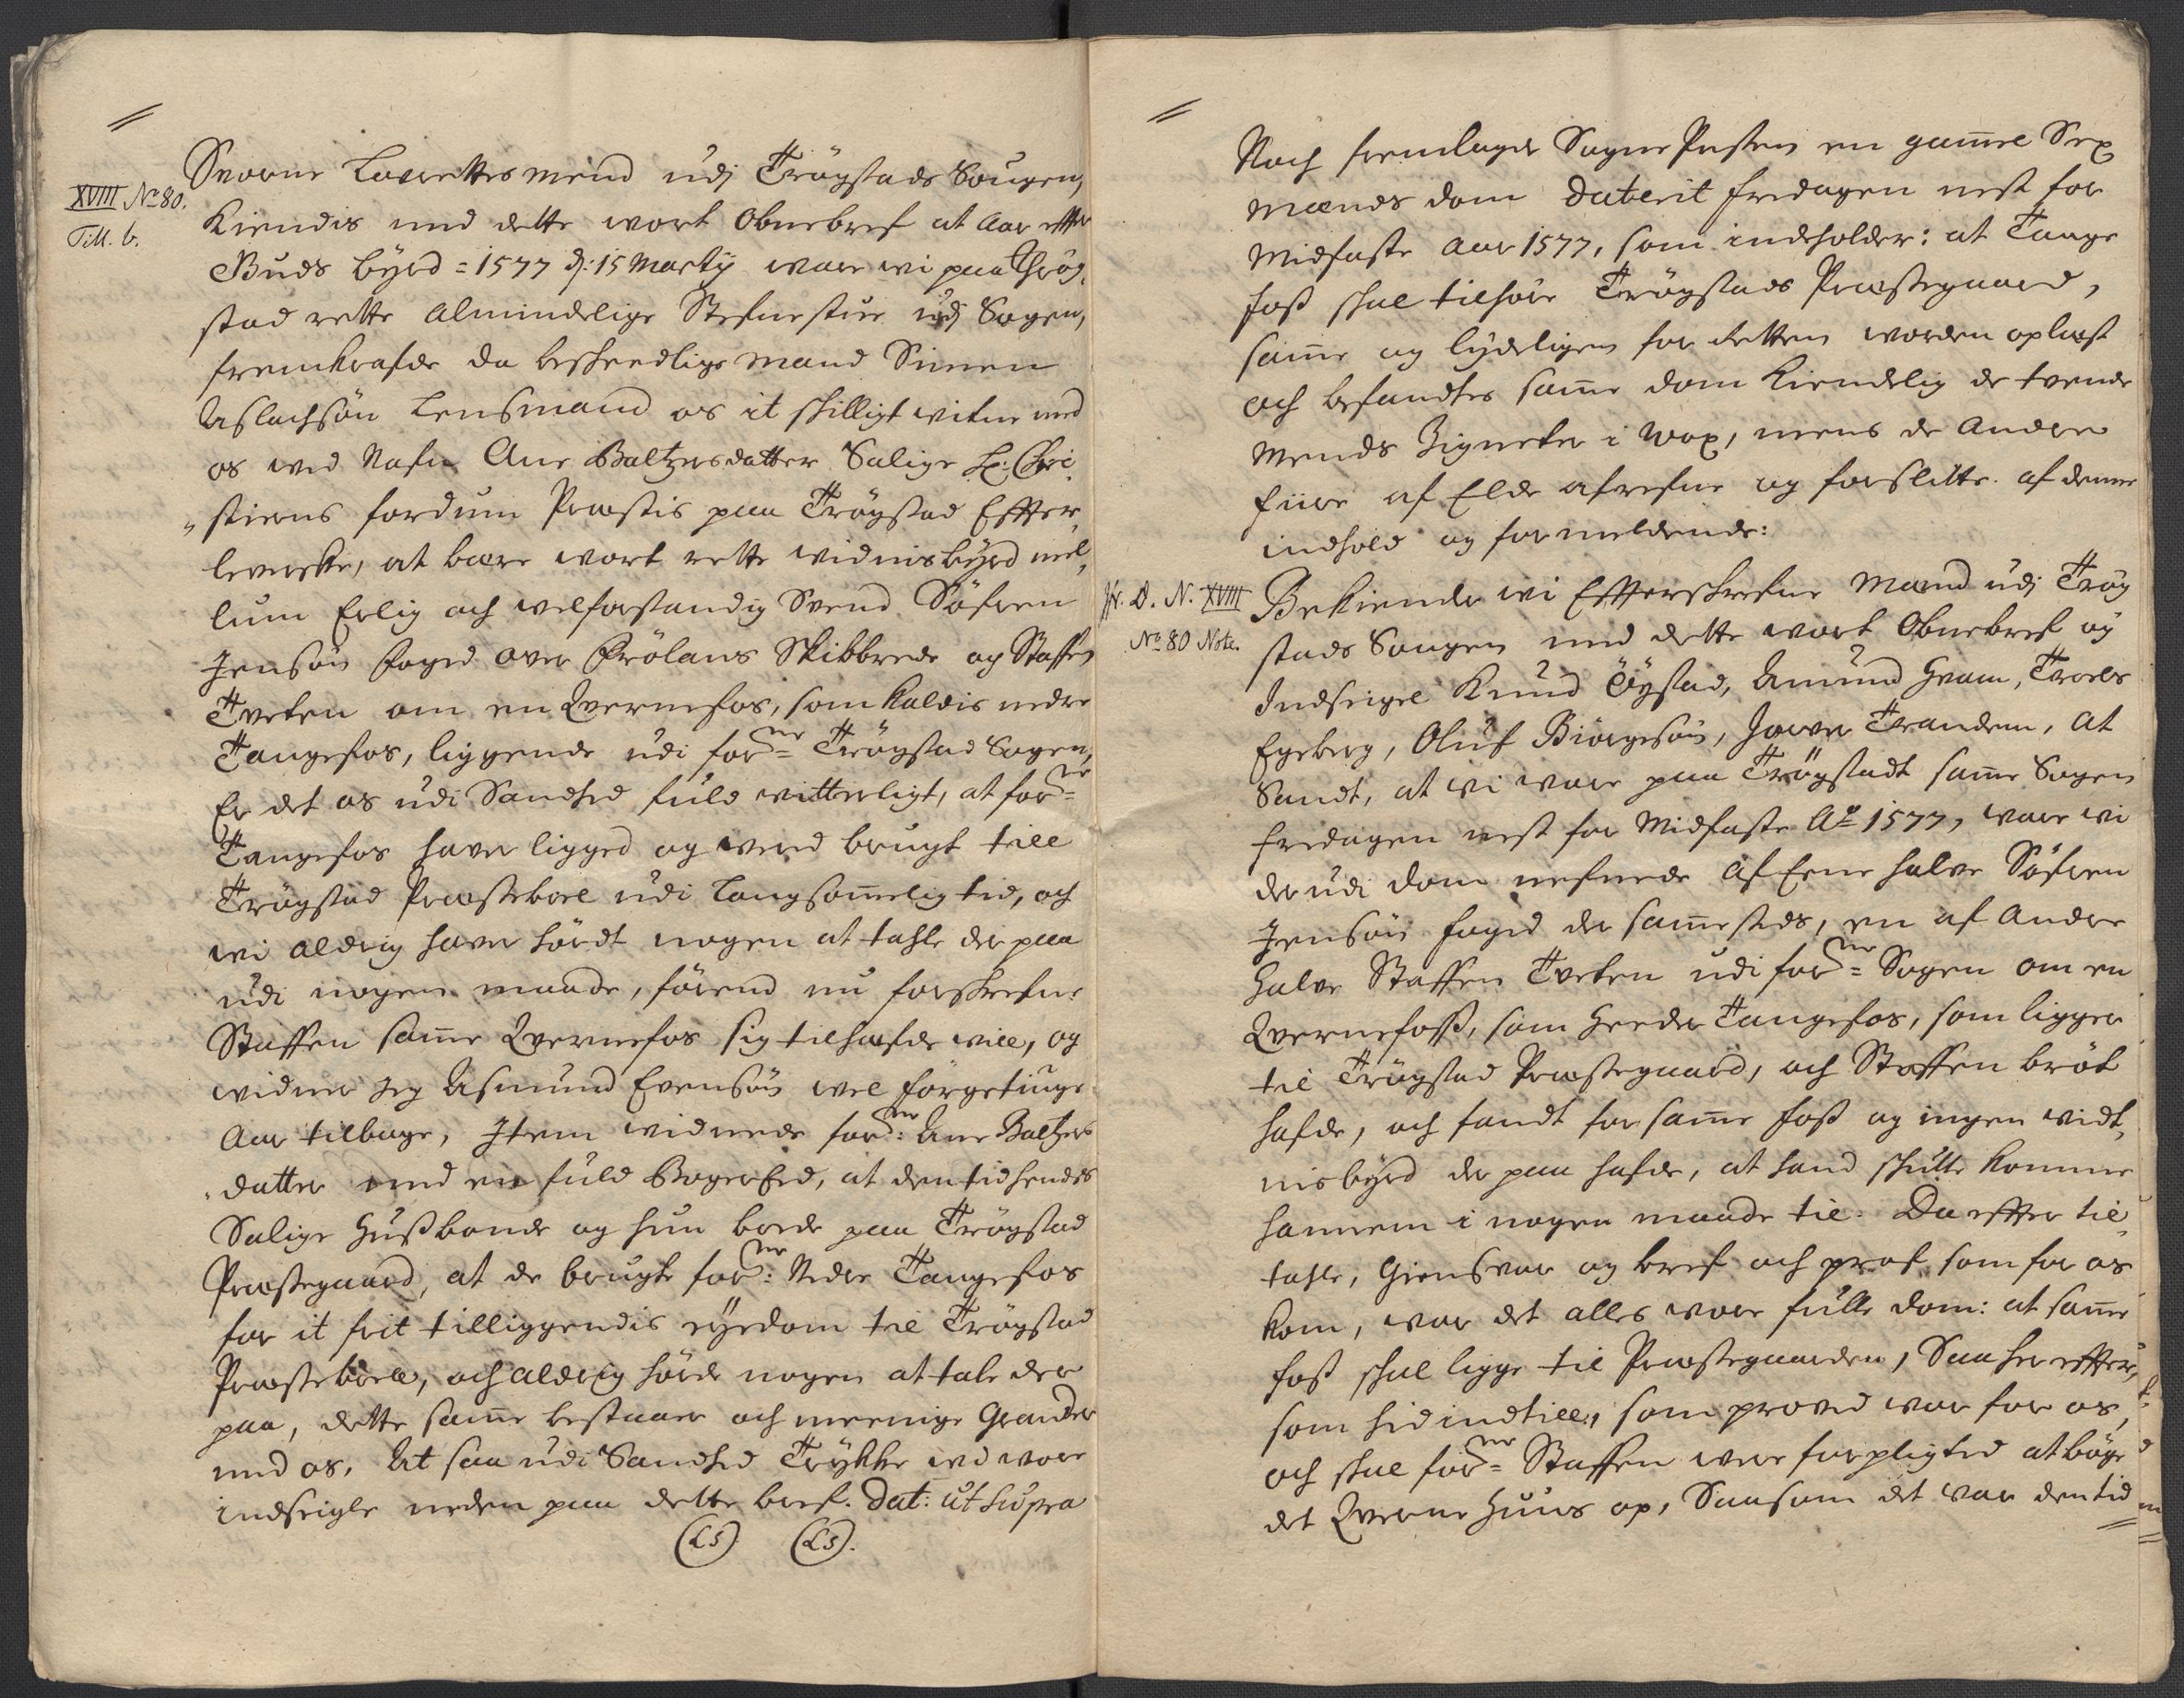 XVIII No 80.
Till. b.
Svorne Lavrettes mend udj Trögstads Sougen,
Kiendis med dette wort Obnebref at Aar effter
Guds byrd = 1577 d: 15 Martij ware wi paa Thrög,
stad rette Almindelige Stefnestue udj Sogen,
fremkrafde da beskeedlige Mand Simen
Aslachsön Lensmand os it skilligt witne med
os wed Nafn Ane Baltzersdatter Salige Hr: Chri,
"stierns fordum Præstis paa Trögstad Effter,
lewerske, at bære wort rette widnisbyrd mel,
lum Erlig och welforstandig Svend Söfren
Jensön foged over Frölans Skibbrede og Staffen
Tveten om en Qvernefos, som kaldis nedre
Tangefos, liggende udi forne = Trögstad Sogen,
Er det os udi Sandhed fuld witterligt, at forne =
Tangefos haver ligged og wered brugt till
Trögstad Prestebole udi Langsomelig tid, och
wi aldrig haver hördt nogen at tahle der paa
udi nogen maade, förend nu forskrefne
Staffen samme Qvernefos sig tilhæfde will, og
widner Jeg Asmund Evensön wel förgetiuge
Aar tilbage, Item widnede forne: Ane Baltzers
"datter med en fuld Bogereed, at den tid hendes
Salige Hußbonde og hun bode paa Trögstad
Præstegaard, at de brugte forne: Nedre Tangefos
for it frit tilliggendis eyedom til Trögstad
Prestebolle, och aldrig hörde nogen at tale der
paa, dette samme bestaaer och meenige Grander
med os. At saa udi Sandhed Trykke wi wore
indseigle neden paa dette bref. Dat: ut supra
(LS) (LS).
Noch fremlagde Sogne Presten en gammel Sex
mænds dom daterit fredagen nest for
Midfaste Aar 1577, som indeholder: at Tange
foß skal tilhöre Trögstads Præstegaard,
samme og lydeligen for Retten worden oplæst
och befandtes samme dom kiendelig de tvende
Mends Zigneter i wox, mens de andre
fiire af Elde afrefne og forslitte. af denne
indhold og formeldende:
Jfr. D. N. XVIII
No 80 Note.
Bekiende wi Effterskrefne Mænd udj Trög
stads Sougen med dette wort Obnebref og
Indseigel Knud Öystad, Amund Gram, Troels
Egeberg, Oluf Biörgesön, Jower Trandem, at
Sandt, at wi ware paa Trögstadt samme Sogen
fredagen nest for Midfaste Ao 1577, ware wi
der udi dom nefnede af Eene halve Söfren
Jensön foged der sammesteds, en af Andre
Halve Staffen Tveten udi forne = Sogen om en
Qvernefoß, som Heeder Tangefos, som ligger
til Trögstad Præstegaard, och Staffen bröt
hafde, och fandt for samme foß og ingen widt,
nisbyrd der paa hafde, at hand skulle komme
hannem i nogen maade til. Da effter til
tahle, Giensvar og bref och prof som for os
kom, war det alles wore fulle dom: at samme
foß skal ligge til Præstegaarden, Saa her effter,
som hid indtill, som proved war for os,
och skal forne = Staffen were forpligted at böge
det Qverne Huus op, Saasom det war den tid